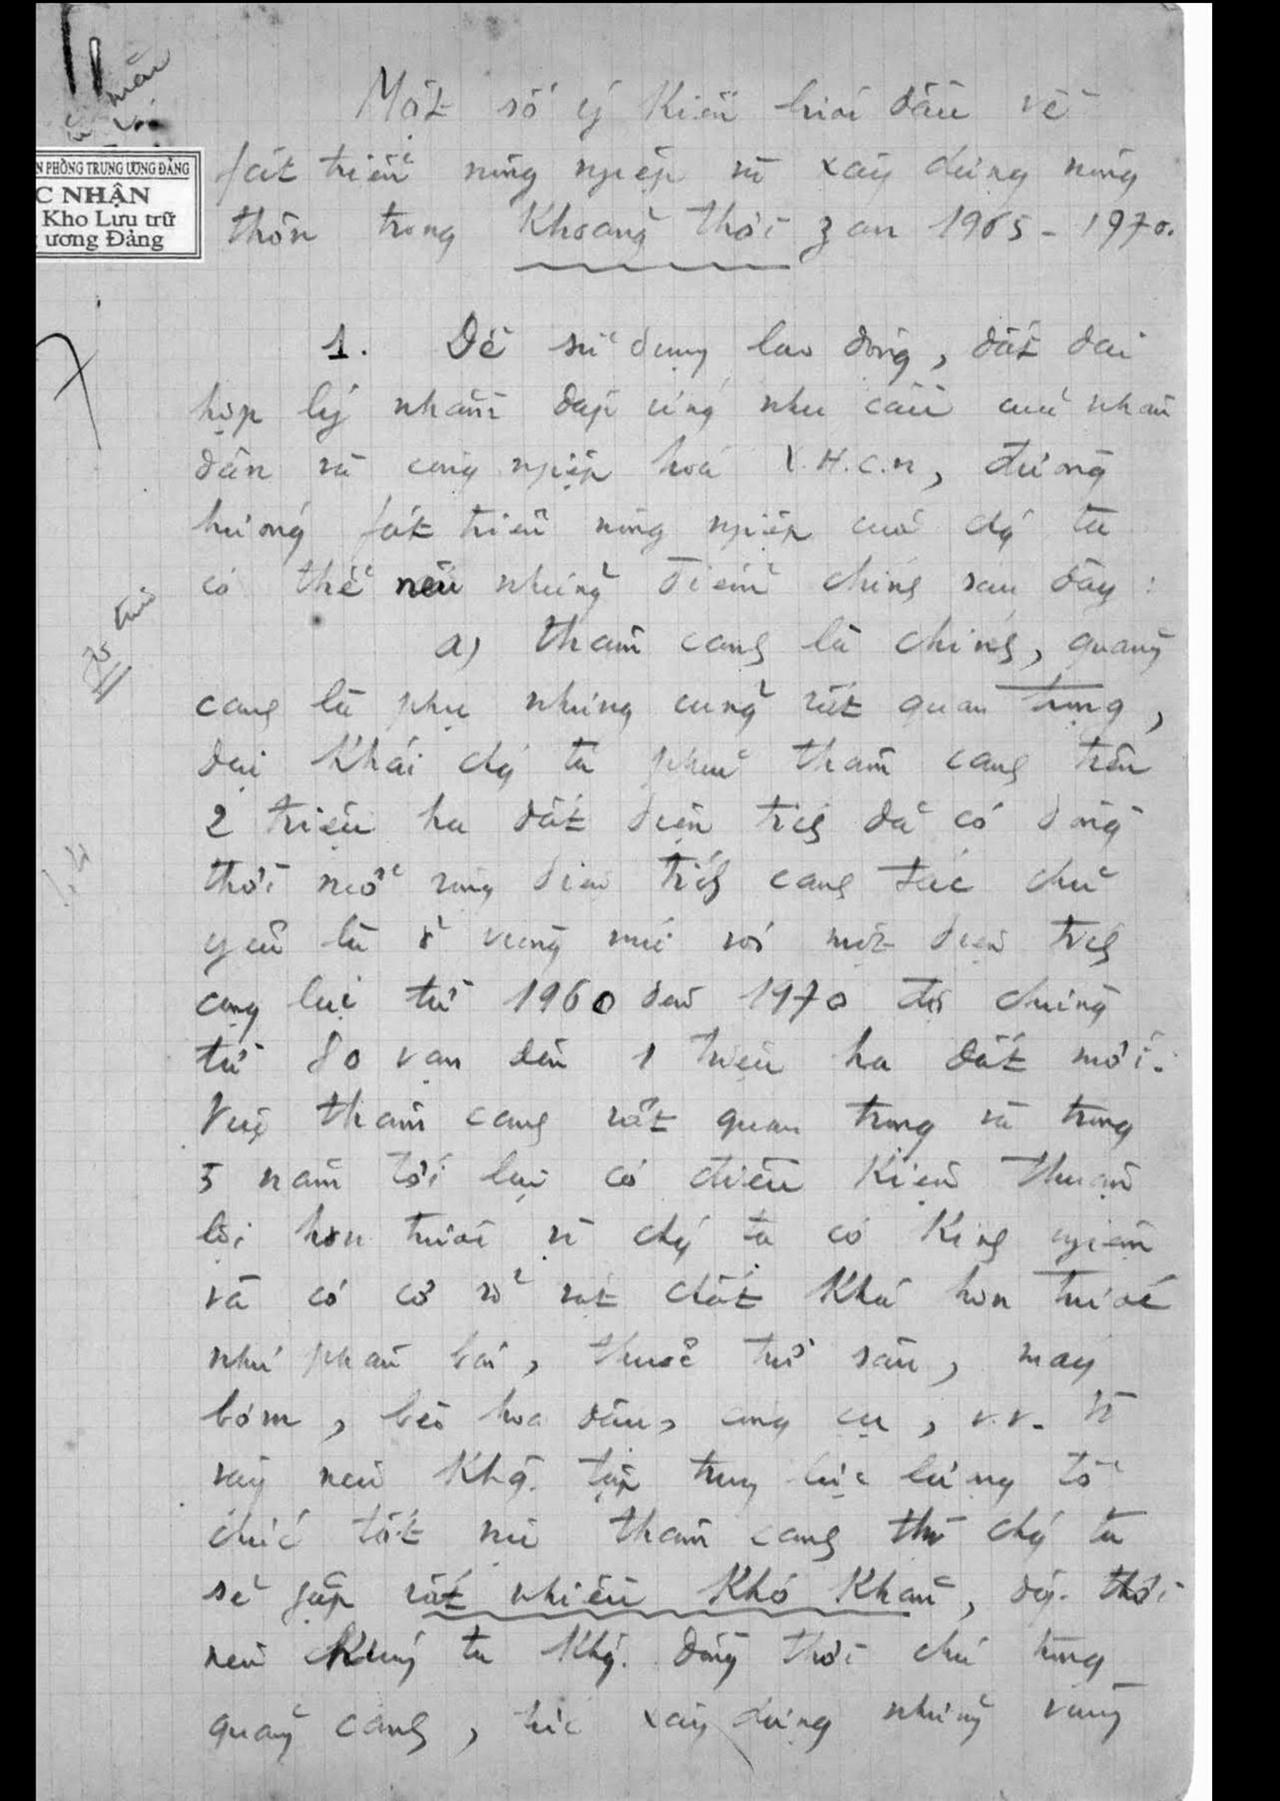 Một số ý kiến bước đầu về
fát triển nông ngiệp và xây dựng nông
thôn trong khoảng thời zan 1965 - 1970.
N PHÒNG TRUNG ƯƠNG ĐẢNG
C NHẬN
Kho Lưu trữ
ương Đảng
1. Để sử dụng lao động, đất đai
hợp lý nhằm đáp ứng nhu cầu của nhân
dân và công ngiệp hoá X.H.C.N, đường
hướng fát triển nông ngiệp của chg ta
có thể nêu những điểm chính sau đây :
a) thâm canh là chính, quảng
canh là phụ nhưng cũng rất quan trọng,
đại khái chg ta phải thâm canh trên
2 triệu ha đất diện tích đã có đồng
thời mở rộng diện tích canh tác chủ
yếu là ở vùng núi với một diện tích
cộng lại từ 1960 đến 1970 độ chừng
từ 80 vạn đến 1 triệu ha đất mới.
Việc thâm canh rất quan trọng và trong
5 năm tới lại có điều kiện thuận
lợi hơn trước vì chg ta có king ngiệm
và có cơ sở vật chất khá hơn trước
như phân bón, thuốc trừ sâu, máy
bơm, bèo hoa dâu, công cụ, v.v. Vì
vậy nếu khg. tập trung lực lượng tổ
chức tốt việc thâm canh thì chg ta
sẽ gặp rất nhiều khó khăn, đg. thời
nếu chúng ta khg. đồng thời chú trọng
quảng canh, tức xây dựng những vùng